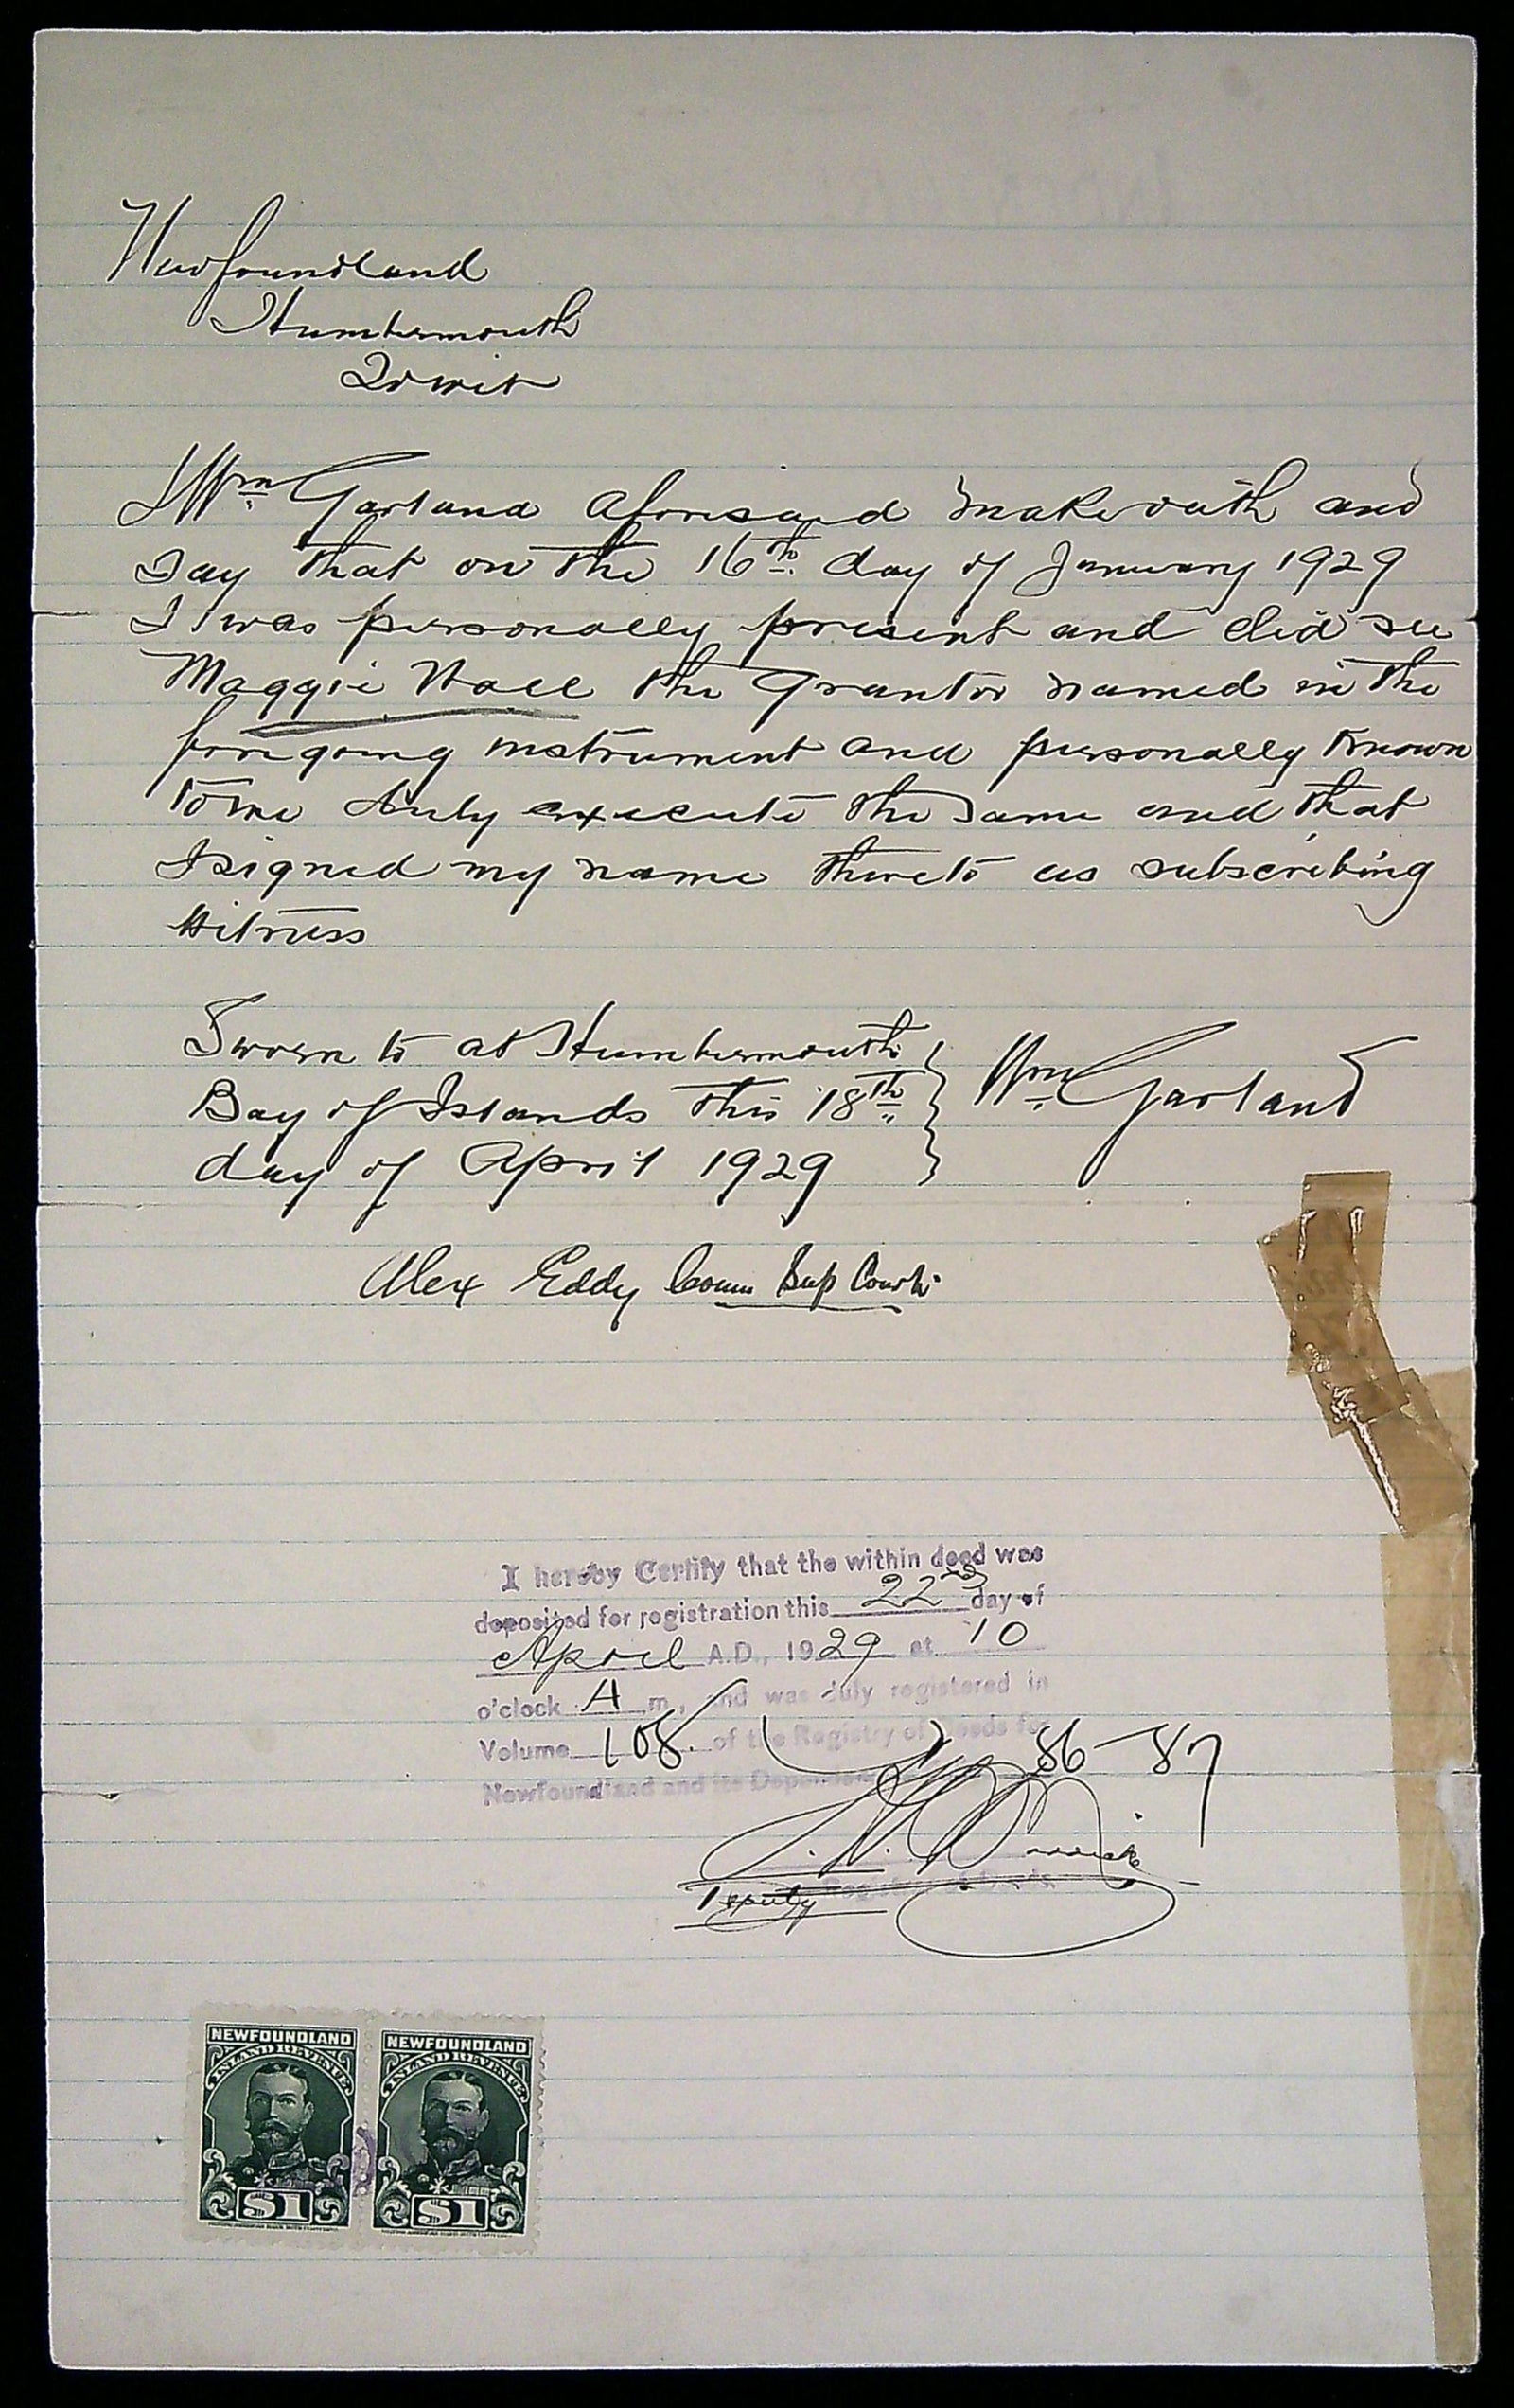 Newfoundland
Humbermouth
To wit
I Wm Garland aforesaid make oath and
say that on the 16th day of January 1929
I was personally present and did see
Maggie the Grantor named in the
foregoing instrument and personally known
to me duly execute the same and that
I signed my name thereto as subscribing
Witness
Sworn to at Humbermouth
Bay of Islands this 18th
day of April 1929
Wm Garland
Alex Eddy Comm Sup Court
I hereby Certify that the within deed was
deposited for registration this 22nd day of
April A.D., 1929 at 10
o'clock A m, and was duly registered in
Volume 108 of the Registry of Deeds for
86-87
Newfoundland and its
Deputy Registrar of Deeds
NEWFOUNDLAND NEWFOUNDLAND
INLAND REVENUE INLAND REVENUE
$1 $1